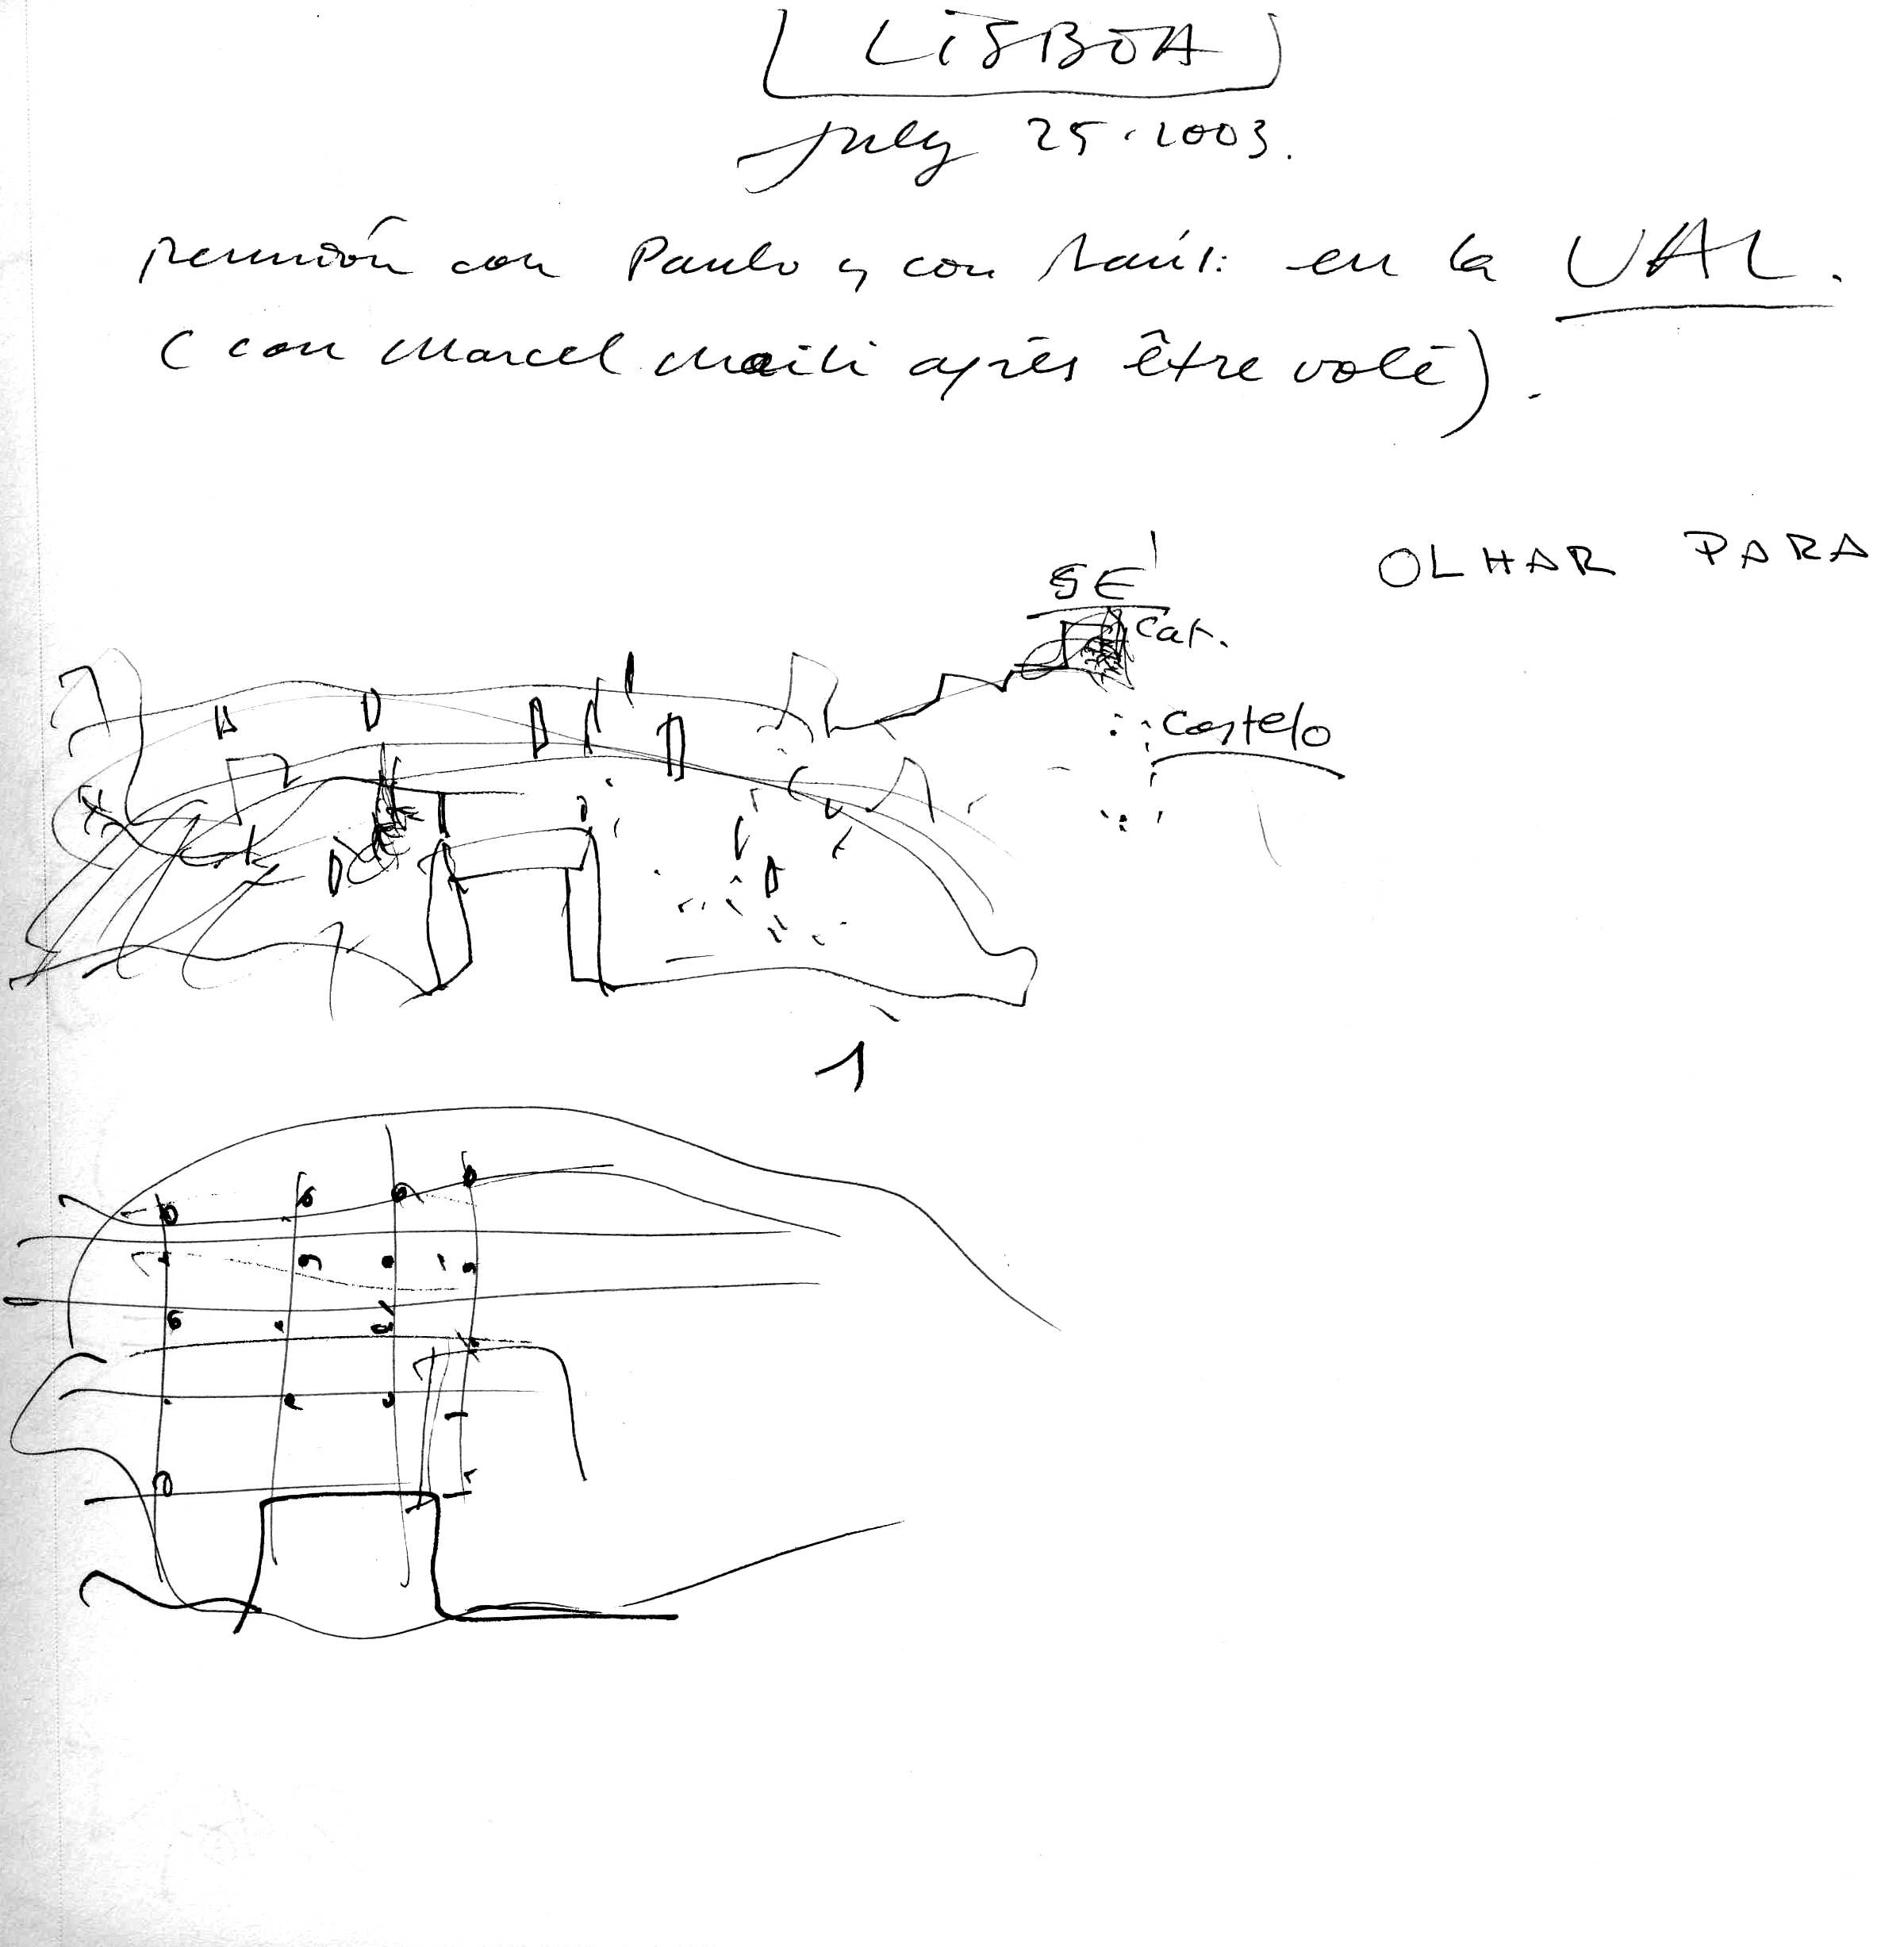 LISBOA
July 25.2003.
reunión con Paulo y con Raúl: en la UAL.
(con Marcel après être volé).
OLHAR PARA
SÉ
Cat.
Castelo
1